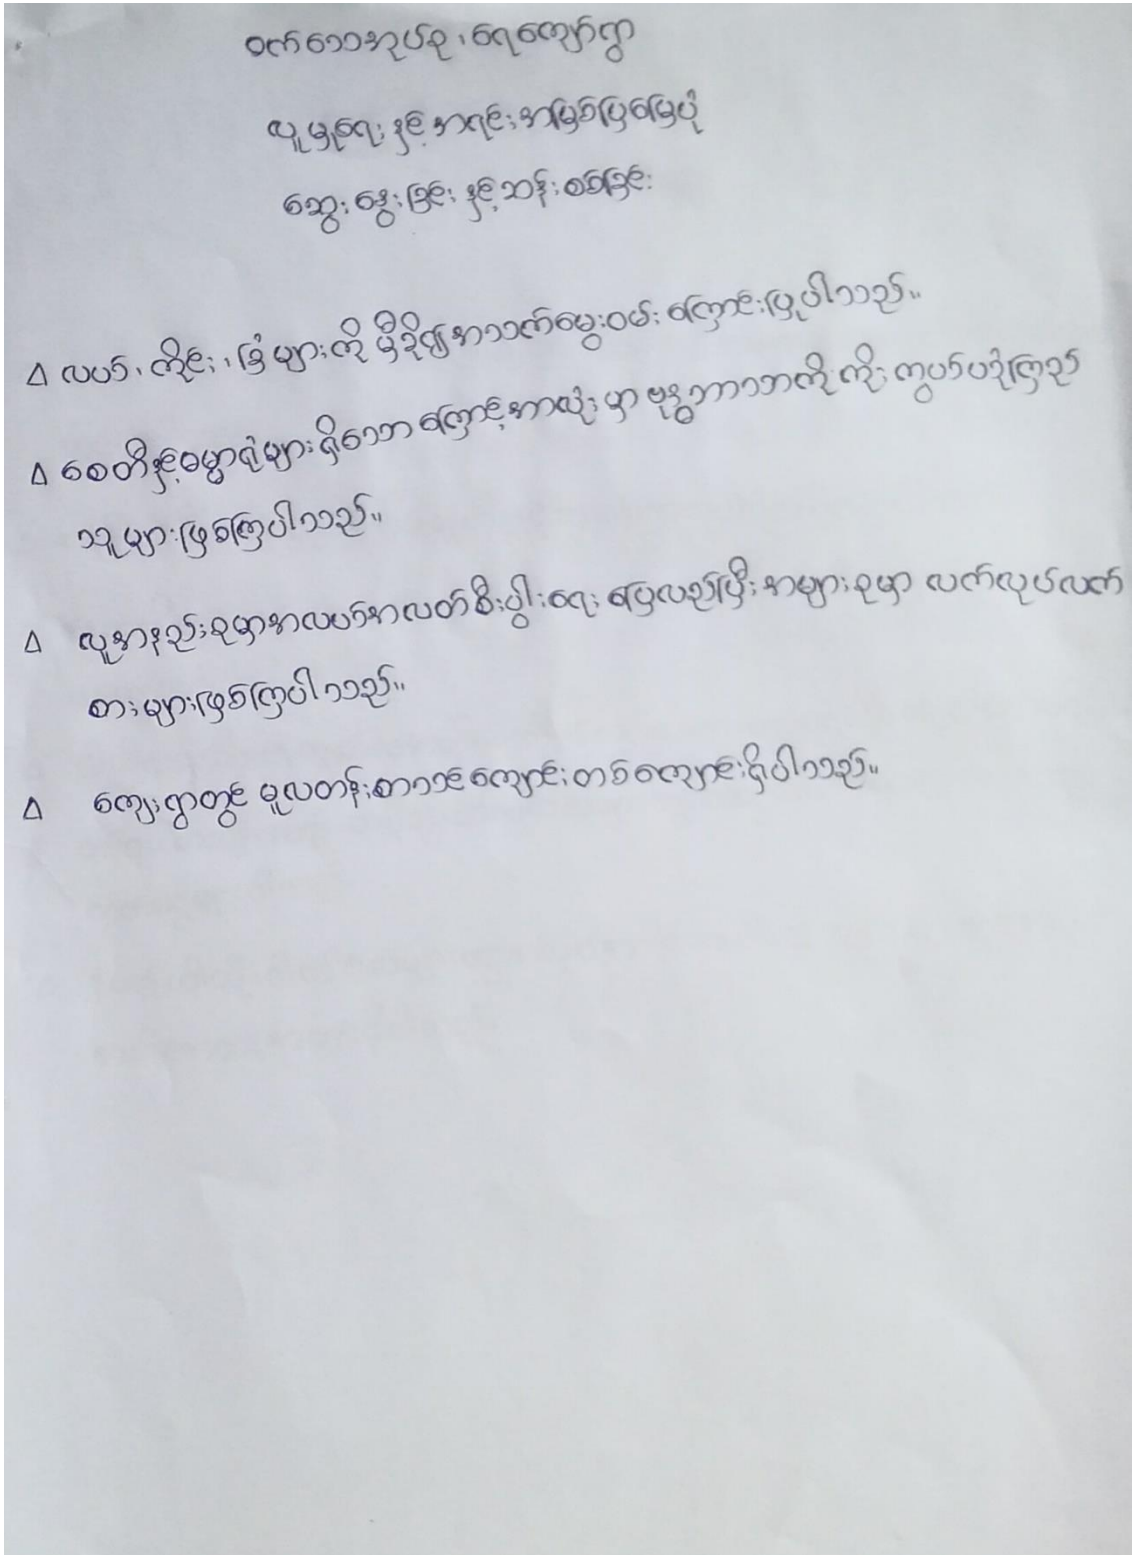 ဝက်သေအုပ်စု၊ ရေကျော်ရွာ
လူမှုရေးနှင့်အရင်းအမြစ်ပြမြေပုံ
ဆွေးနွေးခြင်းနှင့်ဆန်းစစ်ခြင်း
Δ လယ်၊ ကိုင်း၊ ခြံများကိုမှီခို၍အသက်မွေးဝမ်းကြောင်းပြုပါသည်။
Δ စေတီနှင့်ဓမ္မာရုံများရှိသောကြောင့်အားလုံးမှာဗုဒ္ဓဘာသာကိုကိုးကွယ်ယုံကြည်
သူများဖြစ်ကြပါသည်။
Δ လူအနည်းစုမှာအလယ်အလတ်စီးပွါးရေးပြေလည်ပြီးအများစုမှာ လက်လုပ်လက်
စားများဖြစ်ကြပါသည်။
Δ ကျေးရွာတွင် မူလတန်းစာသင်ကျောင်းတစ်ကျောင်းရှိပါသည်။